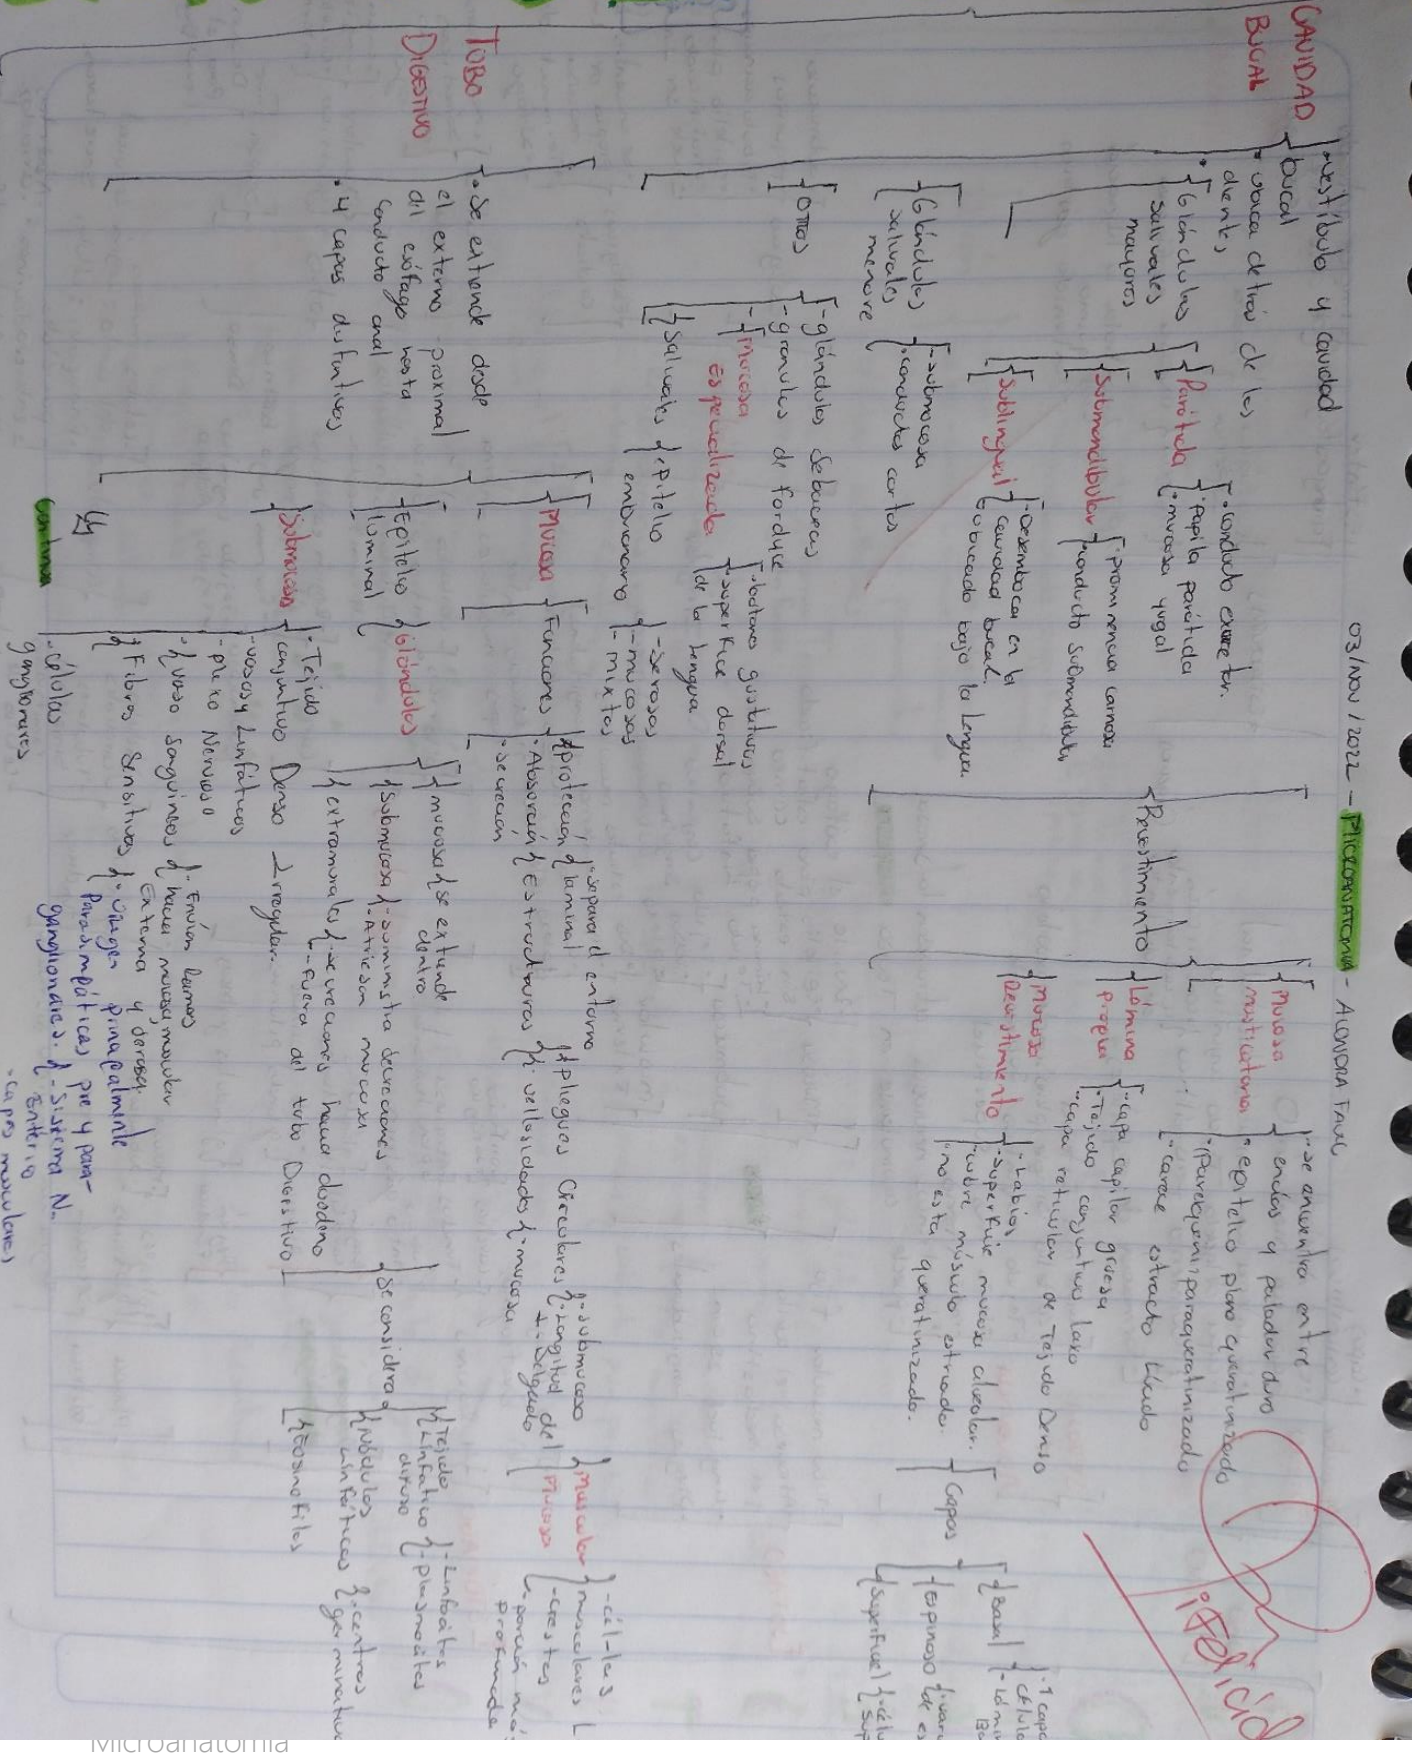 03/Nov/2022 - MICROANATOMIA - ALONDRA
CAVIDAD
BUCAL
• vestíbulo y cavidad
bucal
• ubica detrás de los
dientes
• Glándulas
salivales
mayores
Parótida
• conducto excretor.
• Papila parótida
• mucosa yugal
Submandibular
• prominencia carnosa
• conducto submandibular
Sublingual
• Desemboca en la
cavidad bucal.
• ubicado bajo la lengua
Glándulas
salivales
menore
• submucosa
• conductos cortos
Otros
- glándulas sebaceas
- granulos de fordyce
- Mucosa
Especializada
• botones gustativos
• superficie dorsal
de la lengua
Salivales
epitelio
embrionario
- serosas
- mucosas
- mixtas
Revestimiento
Mucosa
masticatoria
• se encuentra entre
encías y paladar duro
• epitelio plano queratinizado
• carece estracto lúcido
Lámina
propia
• capa capilar gruesa
• Tejido conjuntivo laxo
• capa reticular de Tejido Denso
Mucosa
Revestimiento
• Labios
• superficie mucosa alveolar.
• cubre músculo estriado.
• no esta queratinizado.
Capas
Basal
- 1 capa
Espinoso
Superficial
¡Felicid
TUBO
DIGESTIVO
• Se extiende desde
el extremo proximal
del esófago hasta
conducto anal
• 4 capas distintivas
Mucosa
Funciones
• protección
• separa el entorno
luminal
• Absorción
Estructuras
• pliegues circulares
• submucosa
• Longitud del
+ Delgado
• vellosidades
• mucosa
• secreción
Muscular
Mucosa
musculares
- crestas
- porción más
profunda
Epitelio
luminal
Glándulas
mucosa
se extiende
dentro
Submucosa
- suministra secreciones
- Atriesan mucosa
extramurales
- secreciones hacia duodeno
- Fuera del tubo Digestivo
Se considera
Tejido
Linfático
difuso
- Linfocitos
- plasmocitos
Nódulos
Linfáticos
• centros
Eosinofilos
Submucosa
• Tejido
conjuntivo Denso Irregular.
• vasos y Linfáticos
• plexo Nervioso
• vaso Sanguíneos
- Envían Ramas
hacia mucosa, muscular
Externa y serosa.
Fibras Sensitivas
• Origen principalmente
Parasimpáticas, pre y para-
ganglionares.
- Sistema N.
Entérico
• células
ganglionares
• capas musculares
Continua
Microanatomia